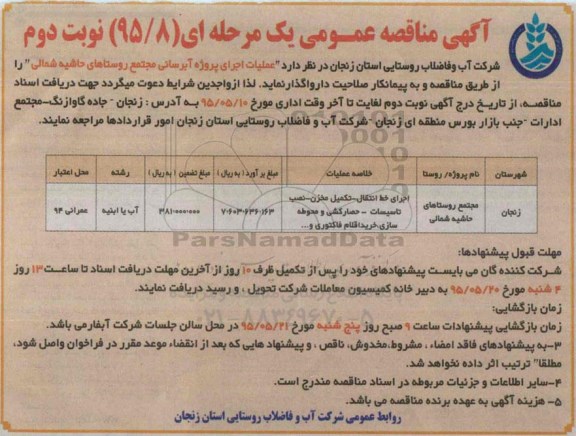 آگهی مناقصه عمومی یک مرحله ای(۹۵/۸) نوبت دوم
شرکت آب وفاضلاب روستایی استان زنجان در نظر دارد "عملیات اجرای پروژه آبرسانی مجتمع روستاهای حاشیه شمالی" را
از طریق مناقصه و به پیمانکار صلاحیت دارواگذارنماید. لذا ازواجدین شرایط دعوت میگردد جهت دریافت اسناد
مناقصه، از تاریخ درج آگهی نوبت دوم لغایت تا آخر وقت اداری مورخ ۹۵/۰۵/۱۰ به آدرس : زنجان - جاده گاوازنگ-مجتمع
ادارات -جنب بازار بورس منطقه ای زنجان -شرکت آب و فاضلاب روستایی استان زنجان امور قراردادها مراجعه نمایند.
شهرستان نام پروژه/ روستا خلاصه عملیات مبلغ برآورد( به ریال ) مبلغ تضمین ( به ریال ) رشته محل اعتبار
زنجان مجتمع روستاهای حاشیه شمالی اجرای خط انتقال-تکمیل مخزن-نصب تاسیسات - حصارکشی و محوطه سازی-خریداقلام فاکتوری و... ۷۰۶۰۳۰۶۳۶۰۱۶۳ ۳۸۱۰۰۰۰۰۰۰ آب یا ابنیه عمرانی ۹۴
ParsNamadData
مهلت قبول پیشنهادها:
شرکت کننده گان می بایست پیشنهادهای خود را پس از تکمیل ظرف ۱۰ روز از آخرین مهلت دریافت اسناد تا ساعت ۱۳ روز
۴ شنبه مورخ ۹۵/۰۵/۲۰ به دبیر خانه کمیسیون معاملات شرکت تحویل ، و رسید دریافت نمایند.
زمان بازگشایی:
۰۲۱-۸۸۳۴۹۶۷۰-۵
زمان بازگشایی پیشنهادات ساعت ۹ صبح روز پنج شنبه مورخ ۹۵/۰۵/۲۱ در محل سالن جلسات شرکت آبفارمی باشد.
۳-به پیشنهادهای فاقد امضاء ، مشروط،مخدوش، ناقص ، و پیشنهاد هایی که بعد از انقضاء موعد مقرر در فراخوان واصل شود،
مطلقا" ترتیب اثر داده نخواهد شد.
۴-سایر اطلاعات و جزئیات مربوطه در اسناد مناقصه مندرج است.
۵- هزینه آگهی به عهده برنده مناقصه می باشد.
روابط عمومی شرکت آب و فاضلاب روستایی استان زنجان